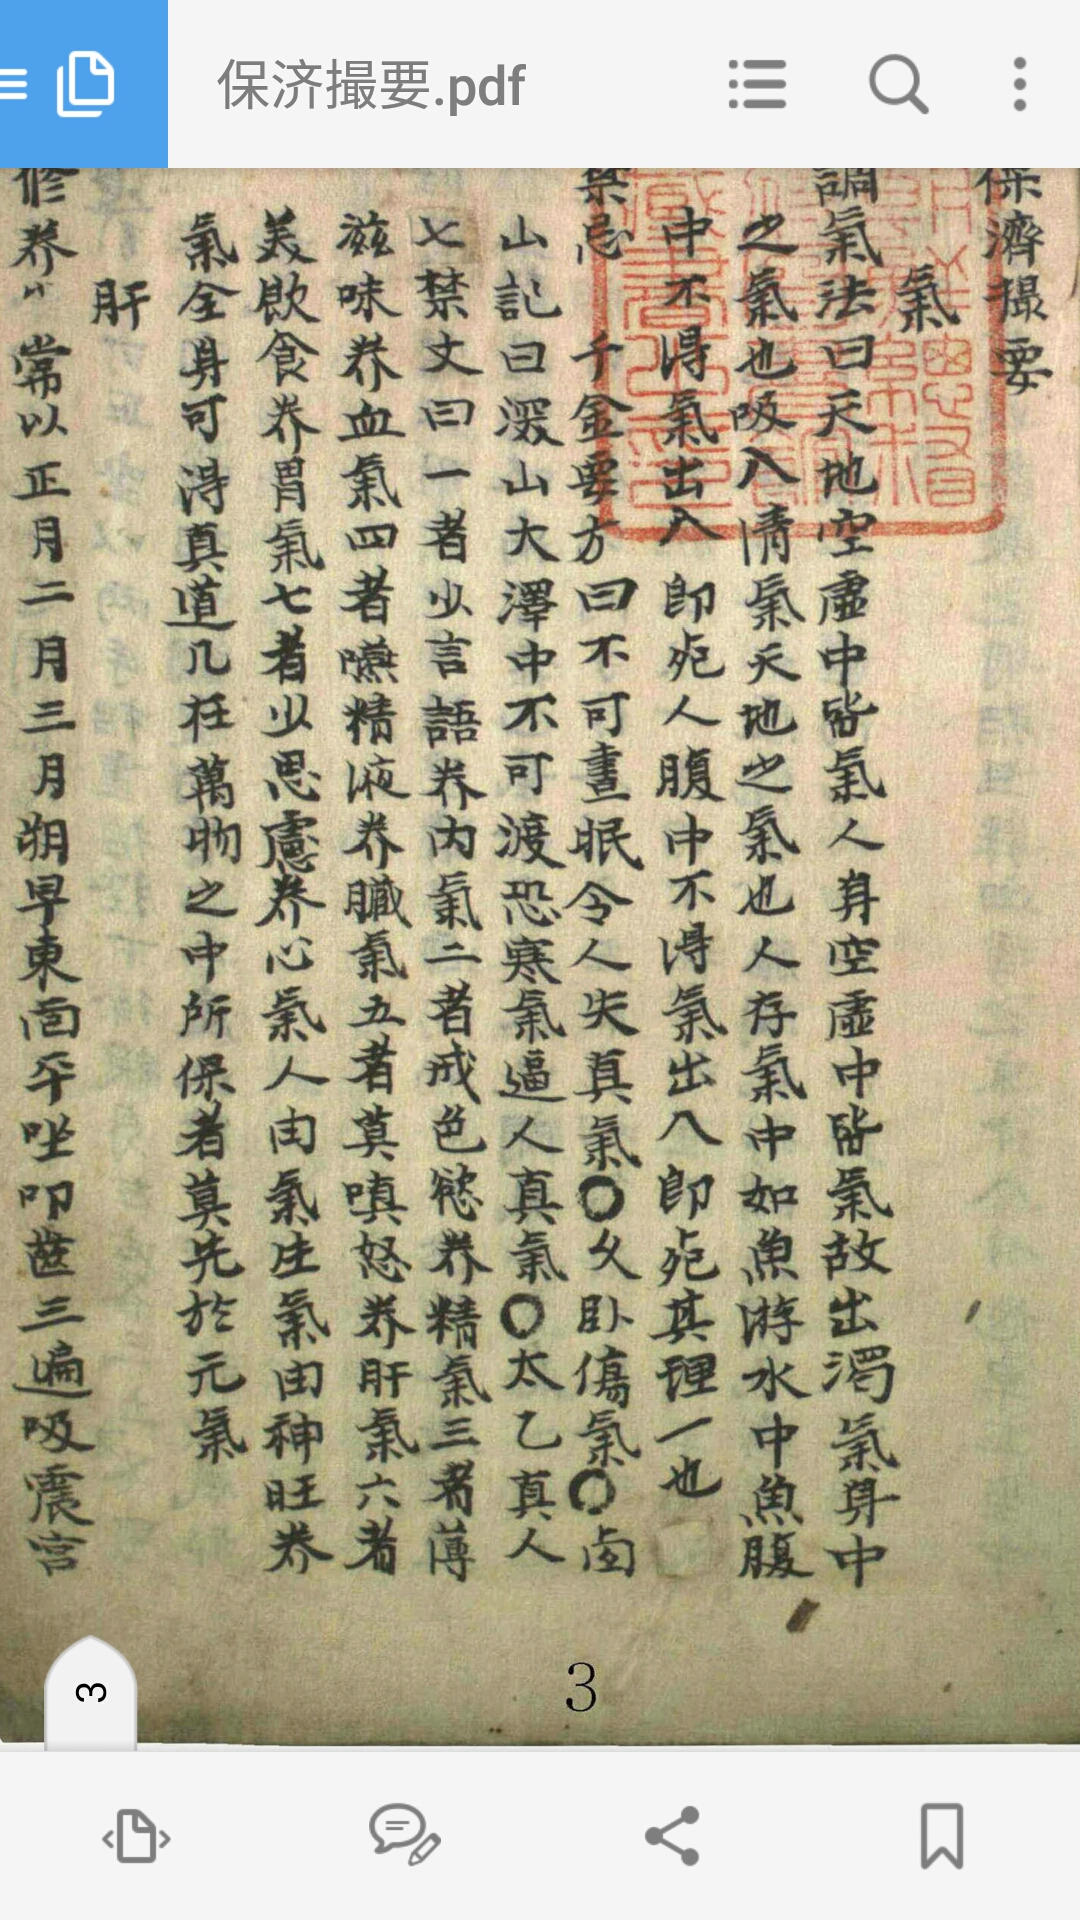 保济撮要.pdf
保濟撮要
氣
調氣法曰天地空虛中皆氣人身空虛中皆氣故出濁氣身中
之氣也吸入淸氣天地之氣也人存氣中如魚游水中魚腹
中不得氣出入即死人腹中不得氣出入即死其理一也
禁忌 千金要方曰不可晝眠令人失真氣○久臥傷氣○卤
山記曰深山大澤中不可渡恐寒氣逼人真氣○太乙真人
七禁文曰一者少言語养內氣二者戒色慾养精氣三者薄
滋味养血氣四者嚥精液养臟氣五者莫嗔怒养肝氣六者
美飲食养胃氣七者少思慮养心氣人由氣生氣由神旺养
氣全身可得真道凡在萬物之中所保者莫先於元氣
肝
修养 常以正月二月三月朔早東面平坐叩齒三遍吸震宮
3
3